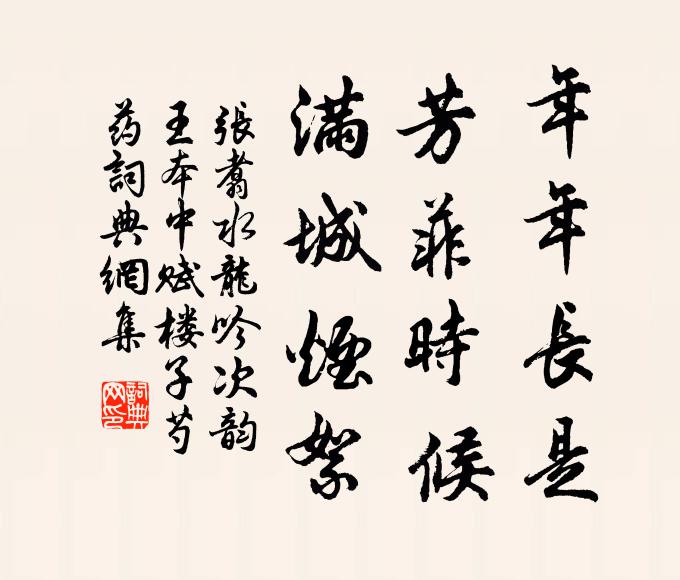 年年長是
芳菲時候
滿城煙絮
張翥水龍吟次韵
王本中賦楼子芍
药詞典網集
詞典网印